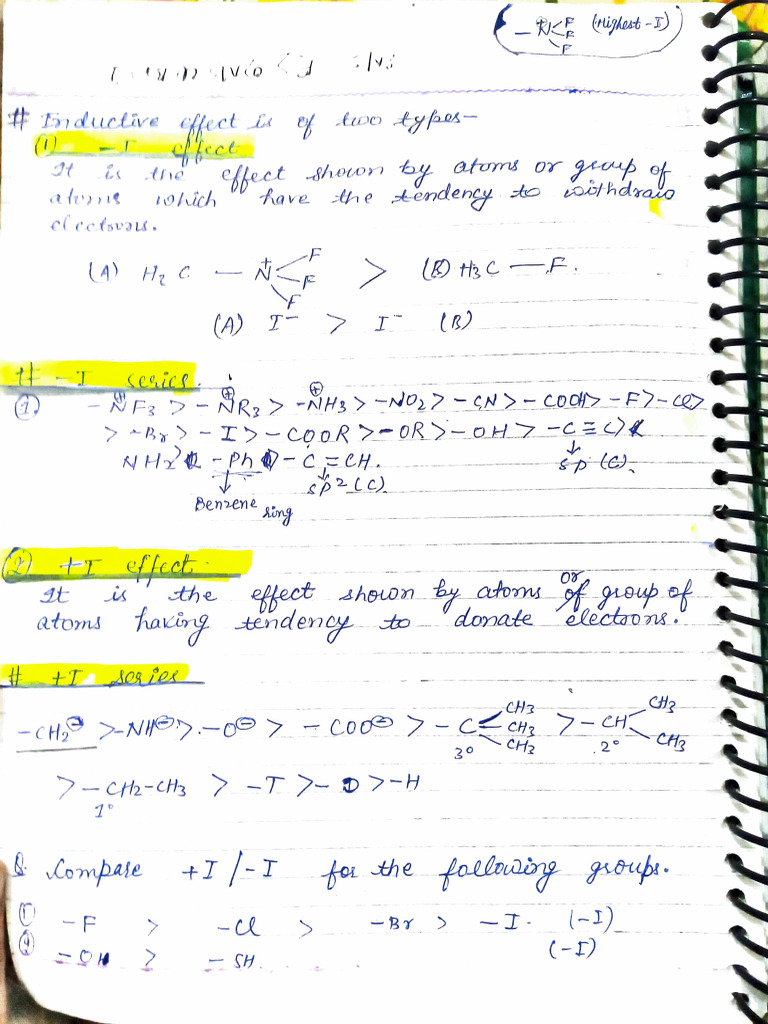 -N⁺ F F F (Highest -I)
# Inductive effect is of two types-
(1) -I effect
It is the effect shown by atoms or group of
atoms which have the tendency to withdraw
electrons.
(A) H2 C — N⁺ F F F > (B) H3C — F.
(A) I⁻ > I⁻ (B)
# -I series.
① -N⁺F3 > -N⁺R3 > -N⁺H3 > -NO2 > -CN > -COOH > -F > -Cl >
> -Br > -I > -COOR > -OR > -OH > -C≡C >
NH2 > -Ph > -C=CH.
↓ sp (C).
↓ sp2 (C).
↓ Benzene ring
② +I effect.
It is the effect shown by atoms or group of
atoms having tendency to donate electrons.
# +I series
-CH2⊖ > -NH⊖ > -O⊖ > -COO⊖ > -C CH3 CH3 CH3 > -CH CH3 CH3
3° 2°
> -CH2-CH3 > -T > -D > -H
1°
Q. Compare +I/-I for the following groups.
① -F > -Cl > -Br > -I. (-I)
-OH > -SH. (-I)